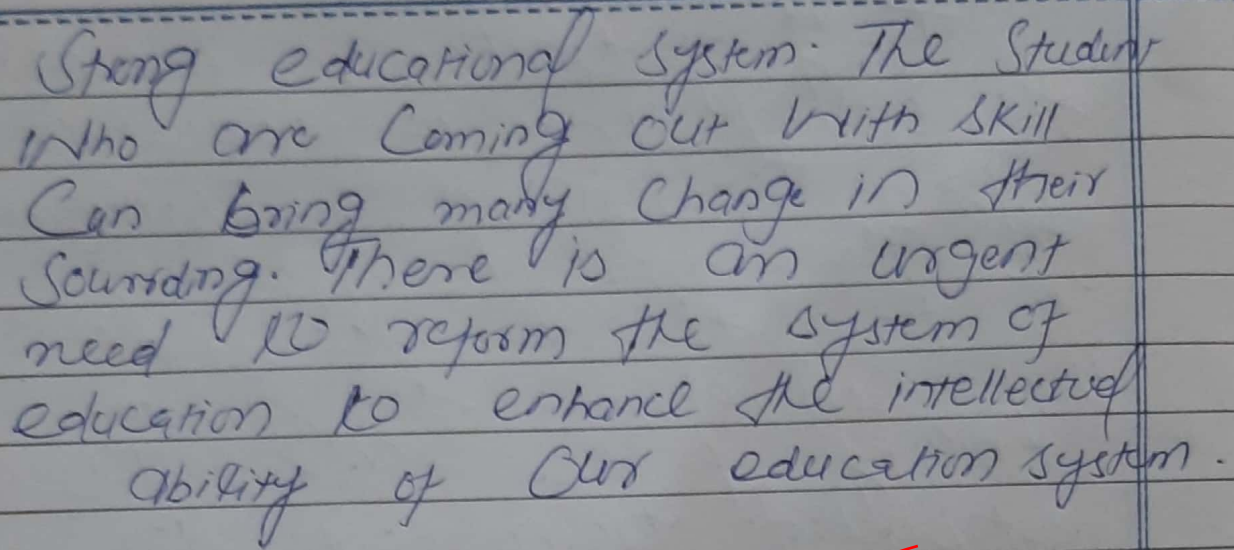 Strong educational system. The Student
Who are Coming out with skill
Can bring many change in their
Sourrding. There is an urgent
need to reform the system of
education to enhance the intellectual
ability of Our education system.